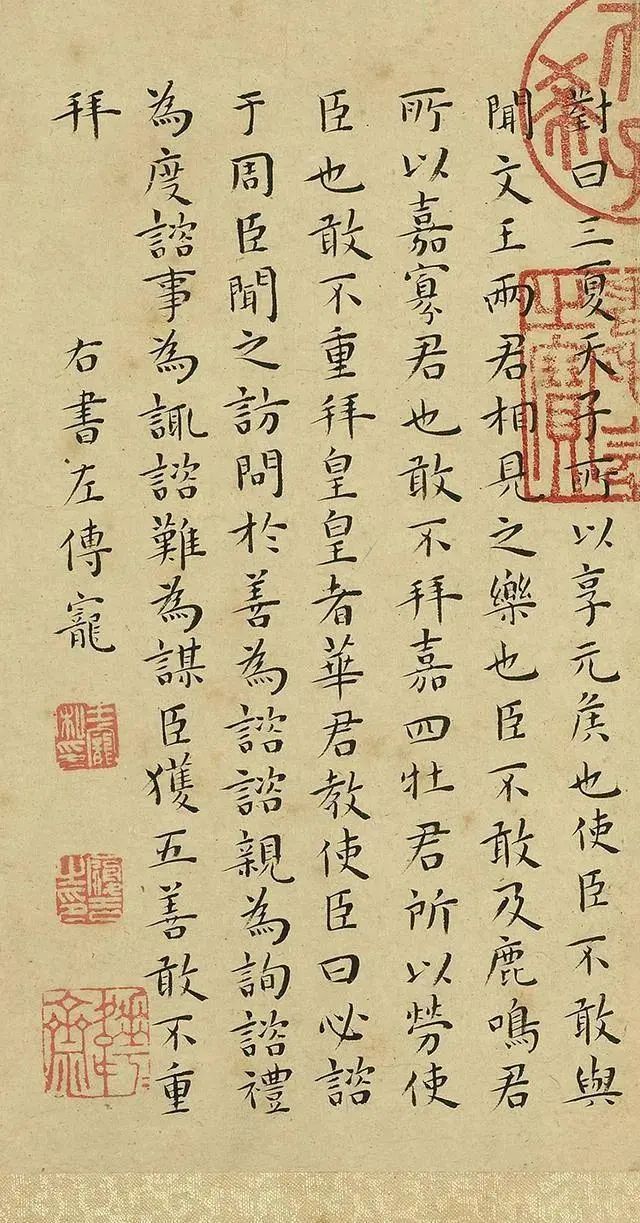 對曰三夏天子所以享元侯也使臣不敢與
聞文王兩君相見之樂也臣不敢及鹿鳴君
所以嘉寡君也敢不拜嘉四牡君所以勞使
臣也敢不重拜皇皇者華君教使臣曰必諮
于周臣聞之訪問於善為諮諮親為詢諮禮
為度諮事為諏諮難為謀臣獲五善敢不重
拜
右書左傳寵